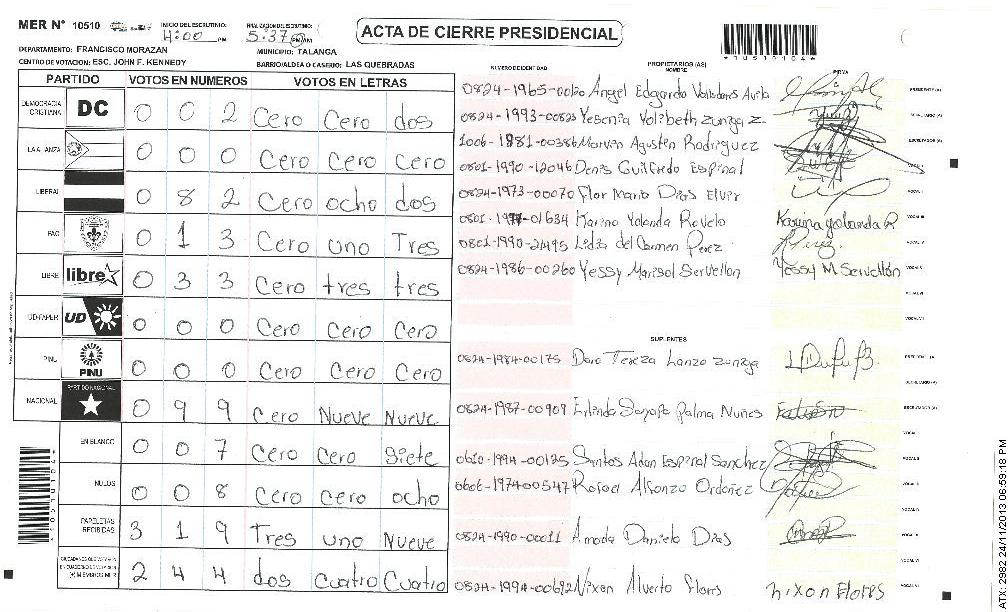 MER N° 10510
INICIO DEL ESCRUTINIO:
4:00 PM
FINALIZACION DEL ESCRUTINIO:
5:37 PM/AM
ACTA DE CIERRE PRESIDENCIAL
DEPARTAMENTO: FRANCISCO MORAZAN
MUNICIPIO: TALANGA
CENTRO DE VOTACION: ESC. JOHN F. KENNEDY
BARRIO/ALDEA O CASERIO: LAS QUEBRADAS
PARTIDO VOTOS EN NUMEROS VOTOS EN LETRAS
DEMOCRACIA CRISTIANA DC 0 0 2 Cero Cero dos
LA ALIANZA 0 0 0 Cero Cero Cero
LIBERAL 0 8 2 Cero ocho dos
PAC 0 1 3 Cero uno Tres
LIBRE libre 0 3 3 Cero tres tres
UD-FAPER UD 0 0 0 Cero Cero Cero
PINU PINU 0 0 0 Cero Cero Cero
NACIONAL PARTIDO NACIONAL 0 9 9 Cero Nueve Nueve
EN BLANCO 0 0 7 Cero Cero Siete
NULOS 0 0 8 Cero cero ocho
PAPELETAS RECIBIDAS 3 1 9 Tres uno Nueve
(+) MIEMBROS MER 2 4 4 dos Cuatro Cuatro
NUMERO IDENTIDAD PROPIETARIOS (AS) NOMBRE FIRMA
0824-1965-0020 Angel Edgardo Valladares Avila PRESIDENTE (A)
0824-1993-00823 Yesenia Yolibeth Zuniga Z. SECRETARIO (A)
1006-1981-00386 Marvin Agusten Rodriguez ESCRUTADOR (A)
0801-1990-12046 Denis Guilfredo Espinal VOCAL I
0824-1973-00070 Flor Maria Dias Elvir VOCAL II
0801-1977-01634 Karina Yolanda Rovelo Karina yolanda R VOCAL III
0801-1990-21495 Lidia del Carmen Perez Perez. VOCAL IV
0824-1986-00260 Yessy Marisol Servellon Yessy M Servellón VOCAL V
VOCAL VI
VOCAL VII
SUPLENTES
0824-1984-00175 Dora Tereza Lanza Zuniga PRESIDENTE (A)
SECRETARIO (A)
0824-1987-00909 Erlinda Palma Nuñes ESCRUTADOR (A)
VOCAL I
0610-1994-00125 Santos Adan Espinal Sanchez VOCAL II
0606-1974-00547 Rafael Alfonzo Ordoñez VOCAL III
VOCAL IV
0824-1990-00011 Amada Daniela Dias VOCAL V
VOCAL VI
0824-1994-00692 Nixon Alverto flores Nixon Flores VOCAL VII
ATX-2982 24/11/2013 06:59:18 PM